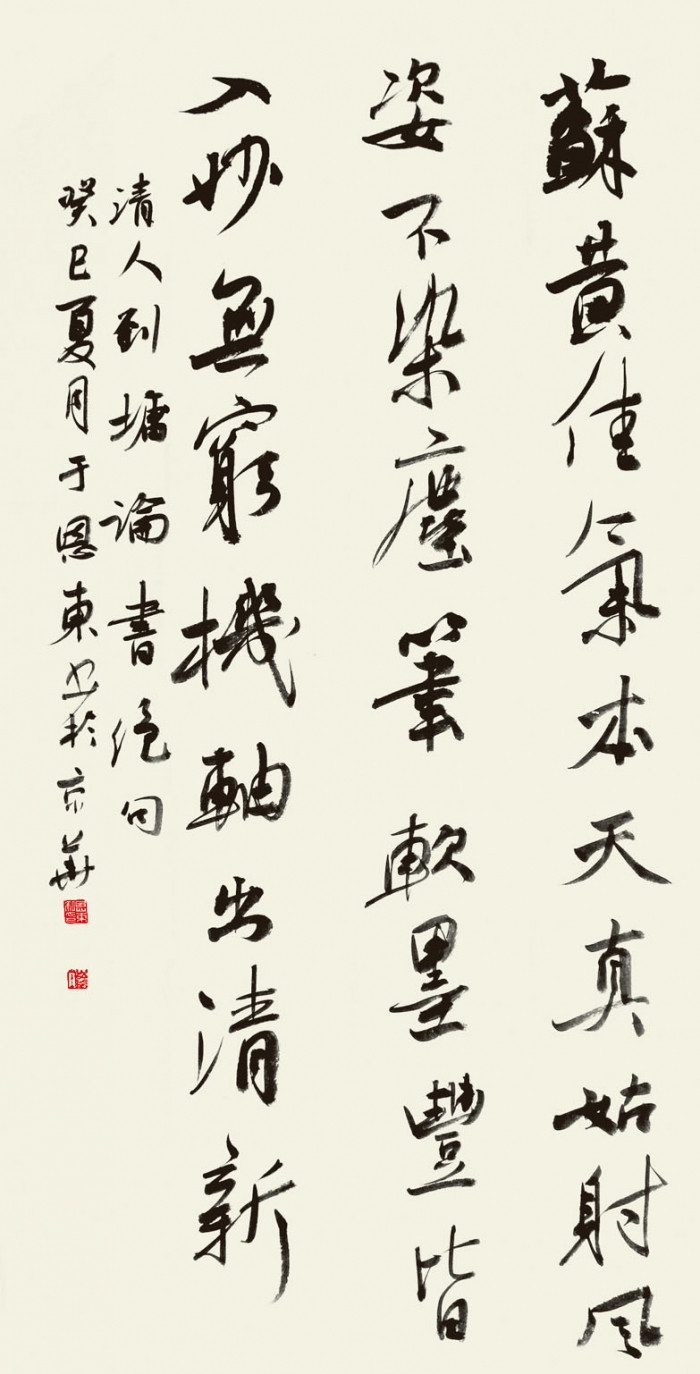 蘇黄佳氣本天真姑射風
姿不染塵筆軟墨豐皆
入妙無窮機軸出清新
清人劉墉論書絶句
癸巳夏月于恩東书於京華